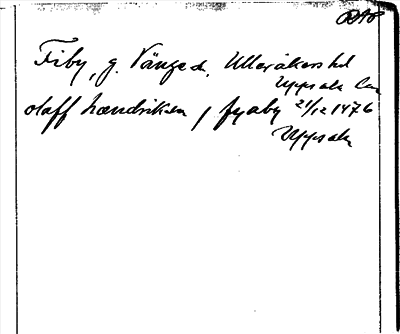 Fiby, g. Vänge sn, Ulleråkers hd
Uppsala län
olaff hendriksn j fyaby 21/12 1476
Uppsala